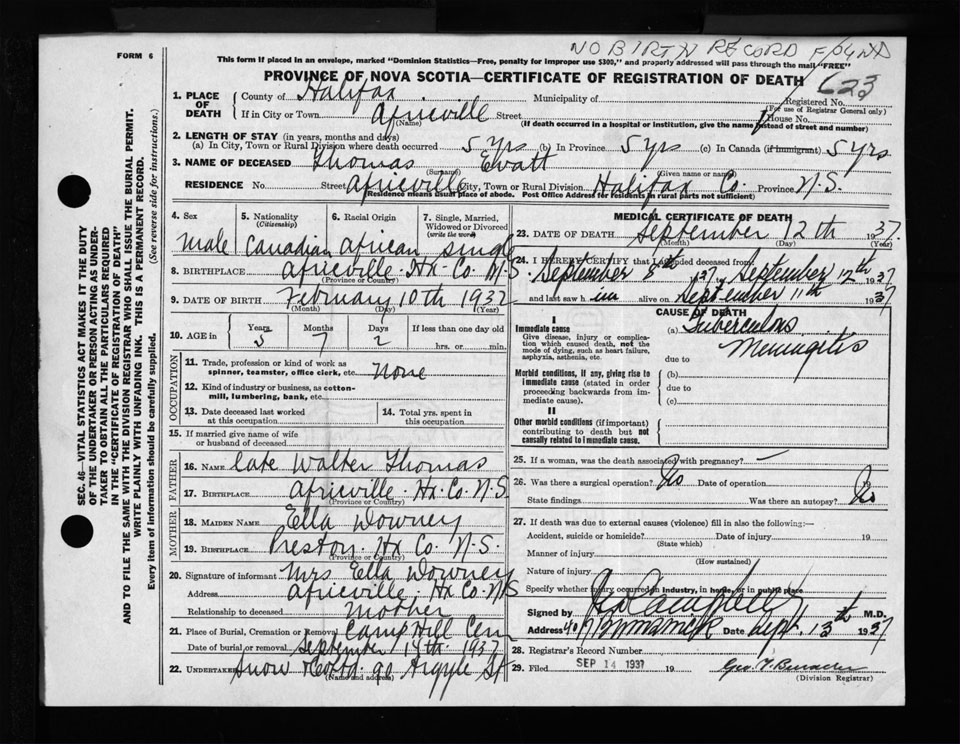 NO BIRTH RECORD FOUND
FORM 6
This form if placed in an envelope, marked "Dominion Statistics—Free, penalty for improper use $300," and properly addressed will pass through the mail "FREE"
PROVINCE OF NOVA SCOTIA—CERTIFICATE OF REGISTRATION OF DEATH
623
1. PLACE OF DEATH
County of Halifax Municipality of Registered No.
(For use of Registrar General only)
If in City or Town Africville Street House No.
(Name) (If death occurred in a hospital or institution, give the name instead of street and number)
2. LENGTH OF STAY (in years, months and days)
(a) In City, Town or Rural Division where death occurred 5 yrs (b) In Province 5 yrs (c) In Canada (if immigrant) 5 yrs
3. NAME OF DECEASED Thomas Evatt
(Surname) (Given name or names)
RESIDENCE No. Street Africville City, Town or Rural Division Halifax Co. Province N.S.
(Residence means usual place of abode. Post Office Address for residents in rural parts not sufficient)
4. Sex
male
5. Nationality
(Citizenship)
Canadian
6. Racial Origin
African
7. Single, Married, Widowed or Divorced
(write the word)
single
8. BIRTHPLACE Africville Hx. Co. N.S.
(Province or Country)
9. DATE OF BIRTH February 10th 1932
(Month) (Day) (Year)
10. AGE in
Years Months Days If less than one day old
5 7 2 hrs. or min.
OCCUPATION
11. Trade, profession or kind of work as
spinner, teamster, office clerk, etc. None
12. Kind of industry or business, as cotton-
mill, lumbering, bank, etc.
13. Date deceased last worked
at this occupation
14. Total yrs. spent in
this occupation
15. If married give name of wife
or husband of deceased
FATHER
16. NAME late Walter Thomas
17. BIRTHPLACE Africville Hx. Co. N.S.
(Province or Country)
MOTHER
18. MAIDEN NAME Ella Downey
19. BIRTHPLACE Preston Hx Co. N.S.
(Province or Country)
20. Signature of informant Mrs. Ella Downey
Address Africville Hx Co. N.S
Relationship to deceased mother
21. Place of Burial, Cremation or Removal Camp Hill Cem
Date of burial or removal September 14th 1937
22. Undertaker Snow 90 Argyle St
(Name and address)
MEDICAL CERTIFICATE OF DEATH
23. DATE OF DEATH September 12th 1937.
(Month) (Day) (Year)
24. I HEREBY CERTIFY that I attended deceased from
September 8th 1937 September 12th 1937
and last saw him alive on September 11th 1937
CAUSE OF DEATH
I
Immediate cause
Give disease, injury or complica-
tion which caused death, not the
mode of dying, such as heart failure,
asphyxia, asthenia, etc.
(a) Tuberculous
Meningitis
due to
Morbid conditions, if any, giving rise to
immediate cause (stated in order
proceeding backwards from im-
mediate cause).
(b)
due to
(c)
II
Other morbid conditions (if important)
contributing to death but not
causally related to immediate cause.
25. If a woman, was the death associated with pregnancy? —
26. Was there a surgical operation? No Date of operation
State findings Was there an autopsy? No
27. If death was due to external causes (violence) fill in also the following:—
Accident, suicide or homicide? Date of injury 19
(State which)
Manner of injury
(How sustained)
Nature of injury
Specify whether injury occurred in industry, in home, or in public place
Signed by Campbell M.D.
Address Date Sept. 13th 1937
28. Registrar's Record Number
29. Filed SEP 14 1937 19
(Division Registrar)
SEC. 46—VITAL STATISTICS ACT MAKES IT THE DUTY
OF THE UNDERTAKER OR PERSON ACTING AS UNDER-
TAKER TO OBTAIN ALL THE PARTICULARS REQUIRED
IN THE "CERTIFICATE OF REGISTRATION OF DEATH"
AND TO FILE THE SAME WITH THE DIVISION REGISTRAR WHO SHALL ISSUE THE BURIAL PERMIT.
WRITE PLAINLY WITH UNFADING INK. THIS IS A PERMANENT RECORD.
Every item of information should be carefully supplied. (See reverse side for instructions.)